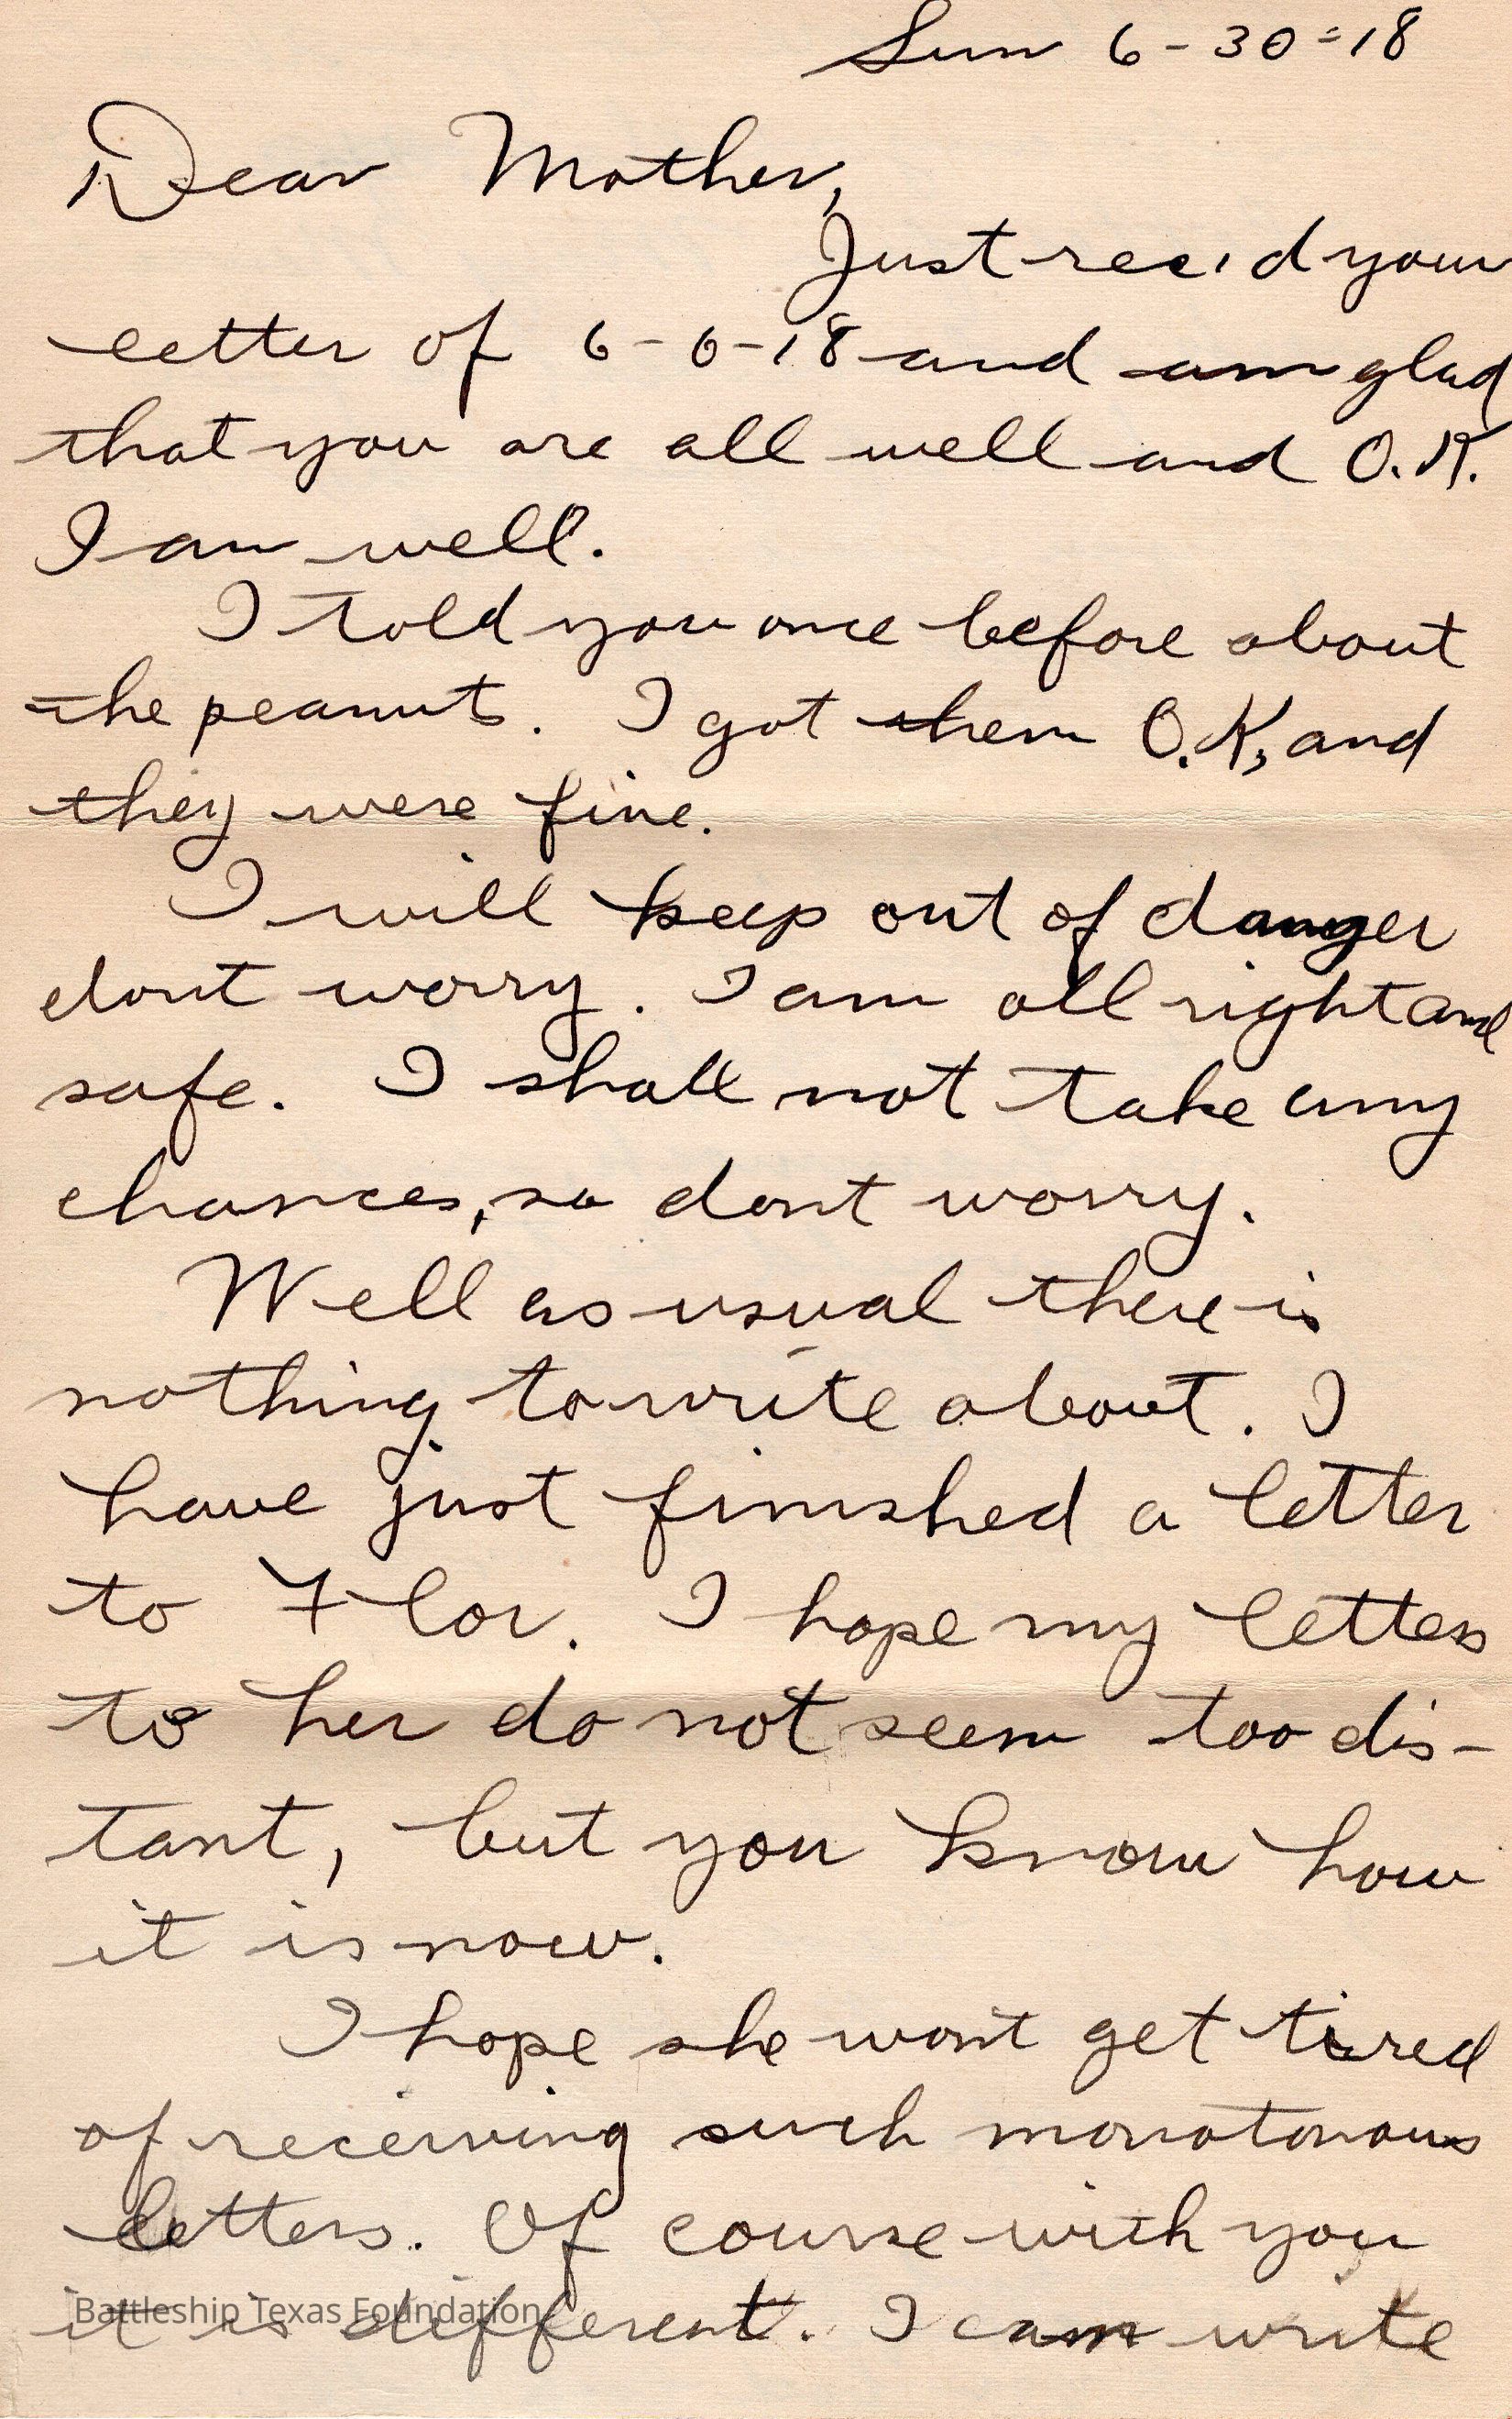 Sun 6-30-18
Dear Mother,
Just rec'd your
letter of 6-6-18 and am glad
that you are all well and O.K.
I am well.
I told you once before about
the peanuts. I got them O.K, and
they were fine.
I will keep out of danger
dont worry. I am all right and
safe. I shall not take any
chances, so dont worry.
Well as usual there is
nothing to write about. I
have just finished a letter
to Flor. I hope my letters
to her do not seem too dis-
tant, but you know how
it is now.
I hope she won't get tired
of receiving such monotonous
letters. Of course with you
it is different. I can write
Battleship Texas Foundation